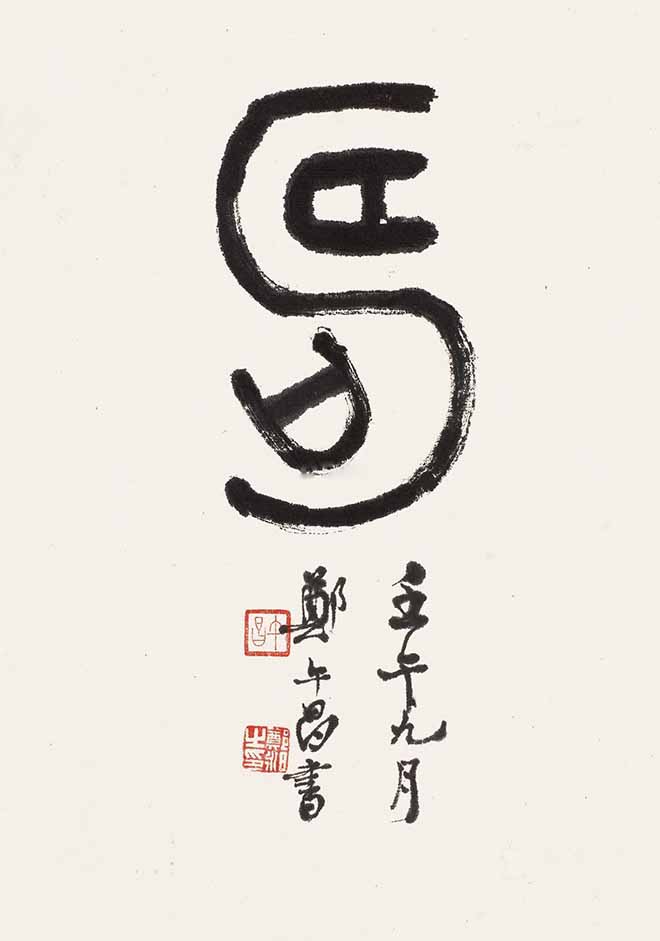 壬午九月
鄭午昌書
午昌
鄭昶之印